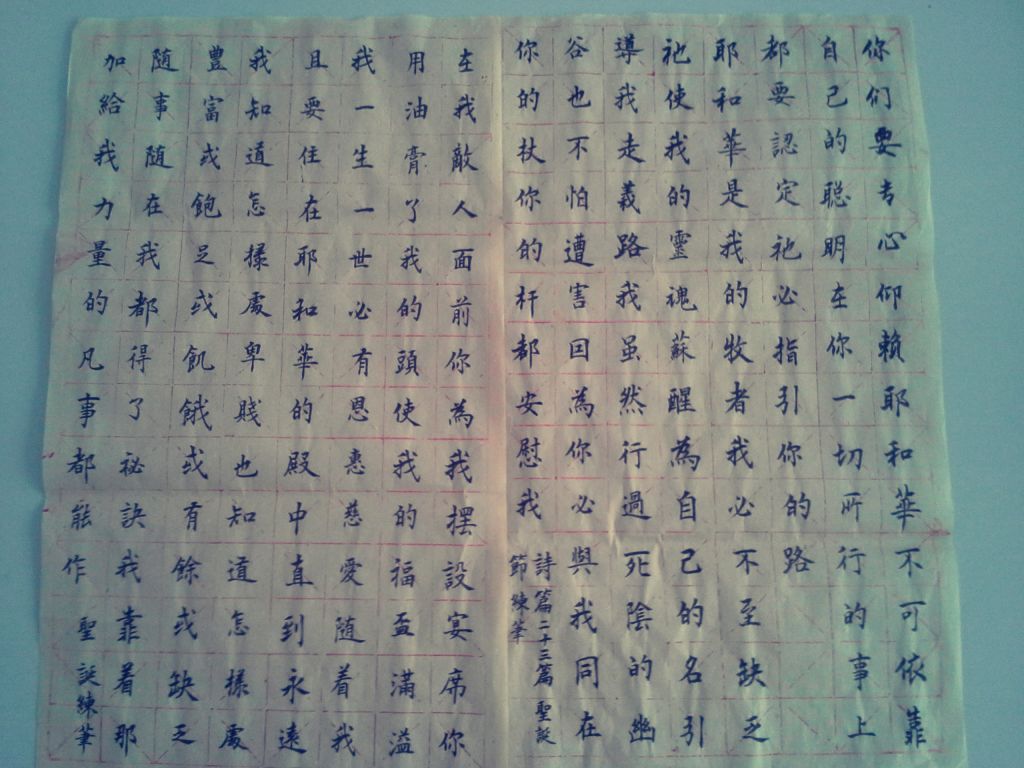 你们要专心仰賴耶和華不可依靠
自己的聪明在你一切所行的事上
都要認定祂必指引你的路
耶和華是我的牧者我必不至缺乏
祂使我的靈魂蘇醒為自己的名引
導我走義路我虽然行過死陰的幽
谷也不怕遭害囙為你必與我同在
你的杖你的杆都安慰我
詩篇二十三篇聖誕
節練筆
在我敵人面前你為我擺設宴席你
用油膏了我的頭使我的福盃滿溢
我一生一世必有恩惠慈愛随着我
且要住在耶和華的殿中直到永遠
我知道怎樣處卑賤也知道怎樣處
豐富或飽足或飢餓或有餘或缺乏
随事随在我都得了祕訣我靠着那
加給我力量的凡事都能作聖誕練筆